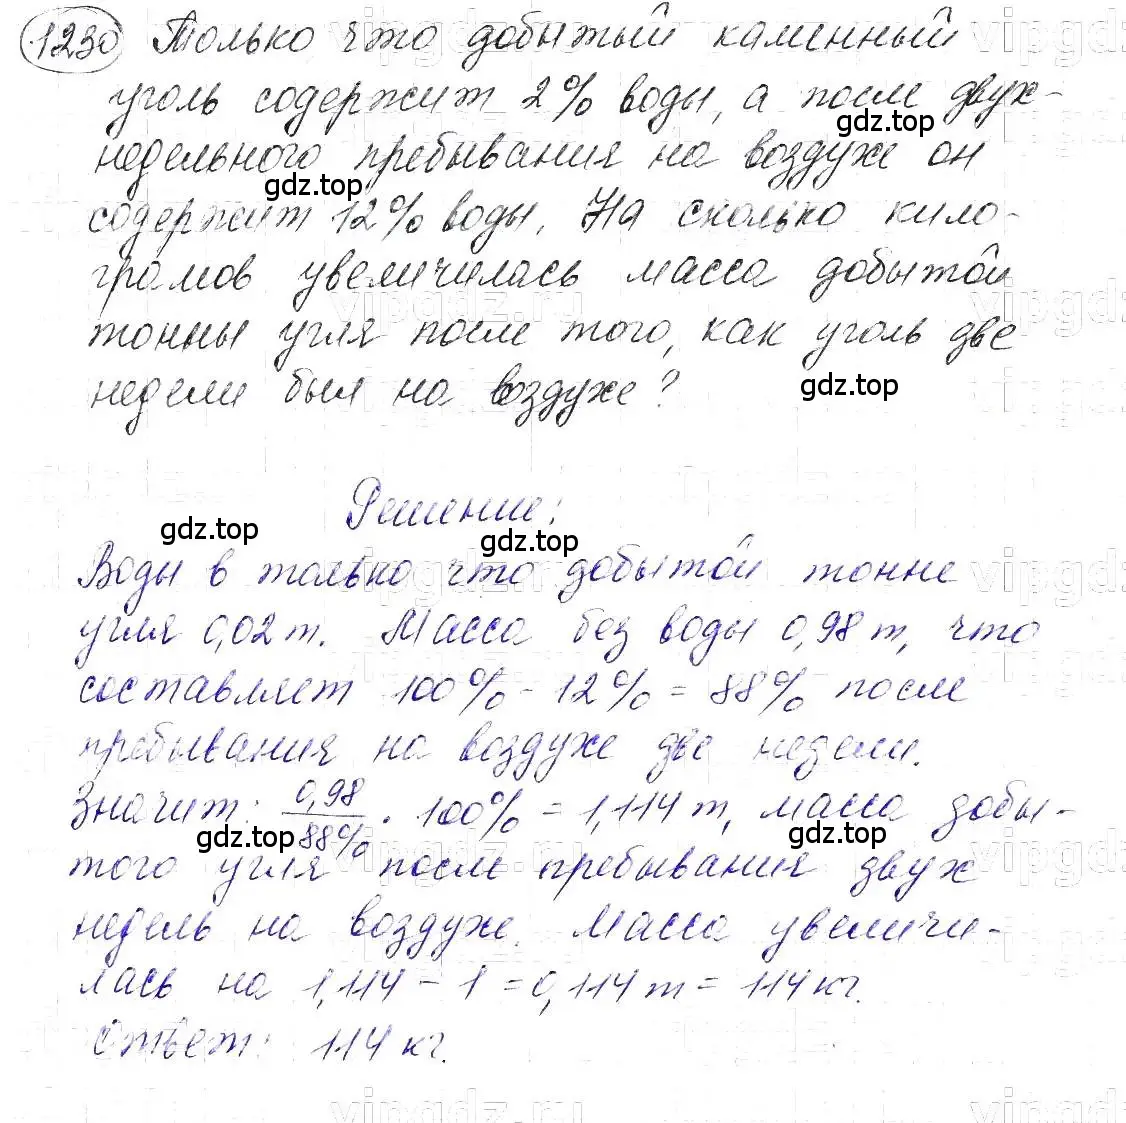 1230 Только что добытый каменный
уголь содержит 2% воды, а после двух-
недельного пребывания на воздухе он
содержит 12% воды. На сколько кило-
грамов увеличилась масса добытой
тонны угля после того, как уголь две
недели был на воздухе?
Решение:
Воды в только что добытой тонне
угля 0,02 т. Масса без воды 0,98 т, что
составляет 100% - 12% = 88% после
пребывания на воздухе две недели.
Значит: 0,98/88% · 100% = 1,114 т, масса добы-
того угля после пребывания двух
недель на воздухе. Масса увеличи-
лась на 1,114 - 1 = 0,114 т = 114 кг.
Ответ: 114 кг.
gdz.top
gdz.top
gdz.top
gdz.top
gdz.top
gdz.top
gdz.top
vipgdz.ru